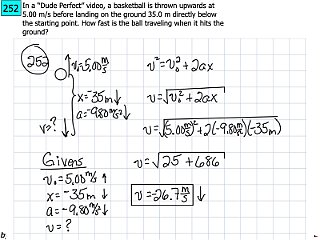 252 In a "Dude Perfect" video, a basketball is thrown upwards at
5.00 m/s before landing on the ground 35.0 m directly below
the starting point. How fast is the ball traveling when it hits the
ground?
252
v₀=5.00 m/s
x=-35m↓
a=-9.80 m/s²↓
v=?↓
Givens
v₀=5.00 m/s ↑
x=-35m ↓
a=-9.80 m/s² ↓
v=?
v²=v₀²+2ax
v=√v₀²+2ax
v=√(5.00 m/s)²+2(-9.80 m/s²)(-35m)
v=√25+686
v=-26.7 m/s ↓